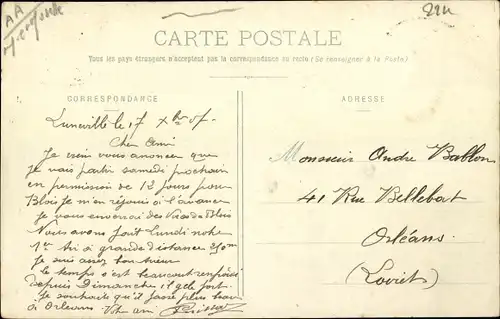 AA
CARTE POSTALE
Tous les pays étrangers n'acceptent pas la correspondance au recto (Se renseigner à la Poste)
CORRESPONDANCE
ADRESSE
Luneville le 17 Xbre 07
Cher Ami
Je viens vous anoncer que
je vais partir samedi prochain
en permission de 12 jours pour
Blois je m'en réjouis à l'avance
Je vous enverrai des Vues de Blois
Nous avons fait Lundi notre
1er Tir à grande distance 250m
Je suis assez bon tireur
le temps s'est beaucoup refroidi
depuis Dimanche il gèle fort.
Je souhaite qu'il fasse plus beau
à Orléans Votre ami
Monsieur Andre Bablon
41 Rue Bellebat
Orléans
(Loiret)